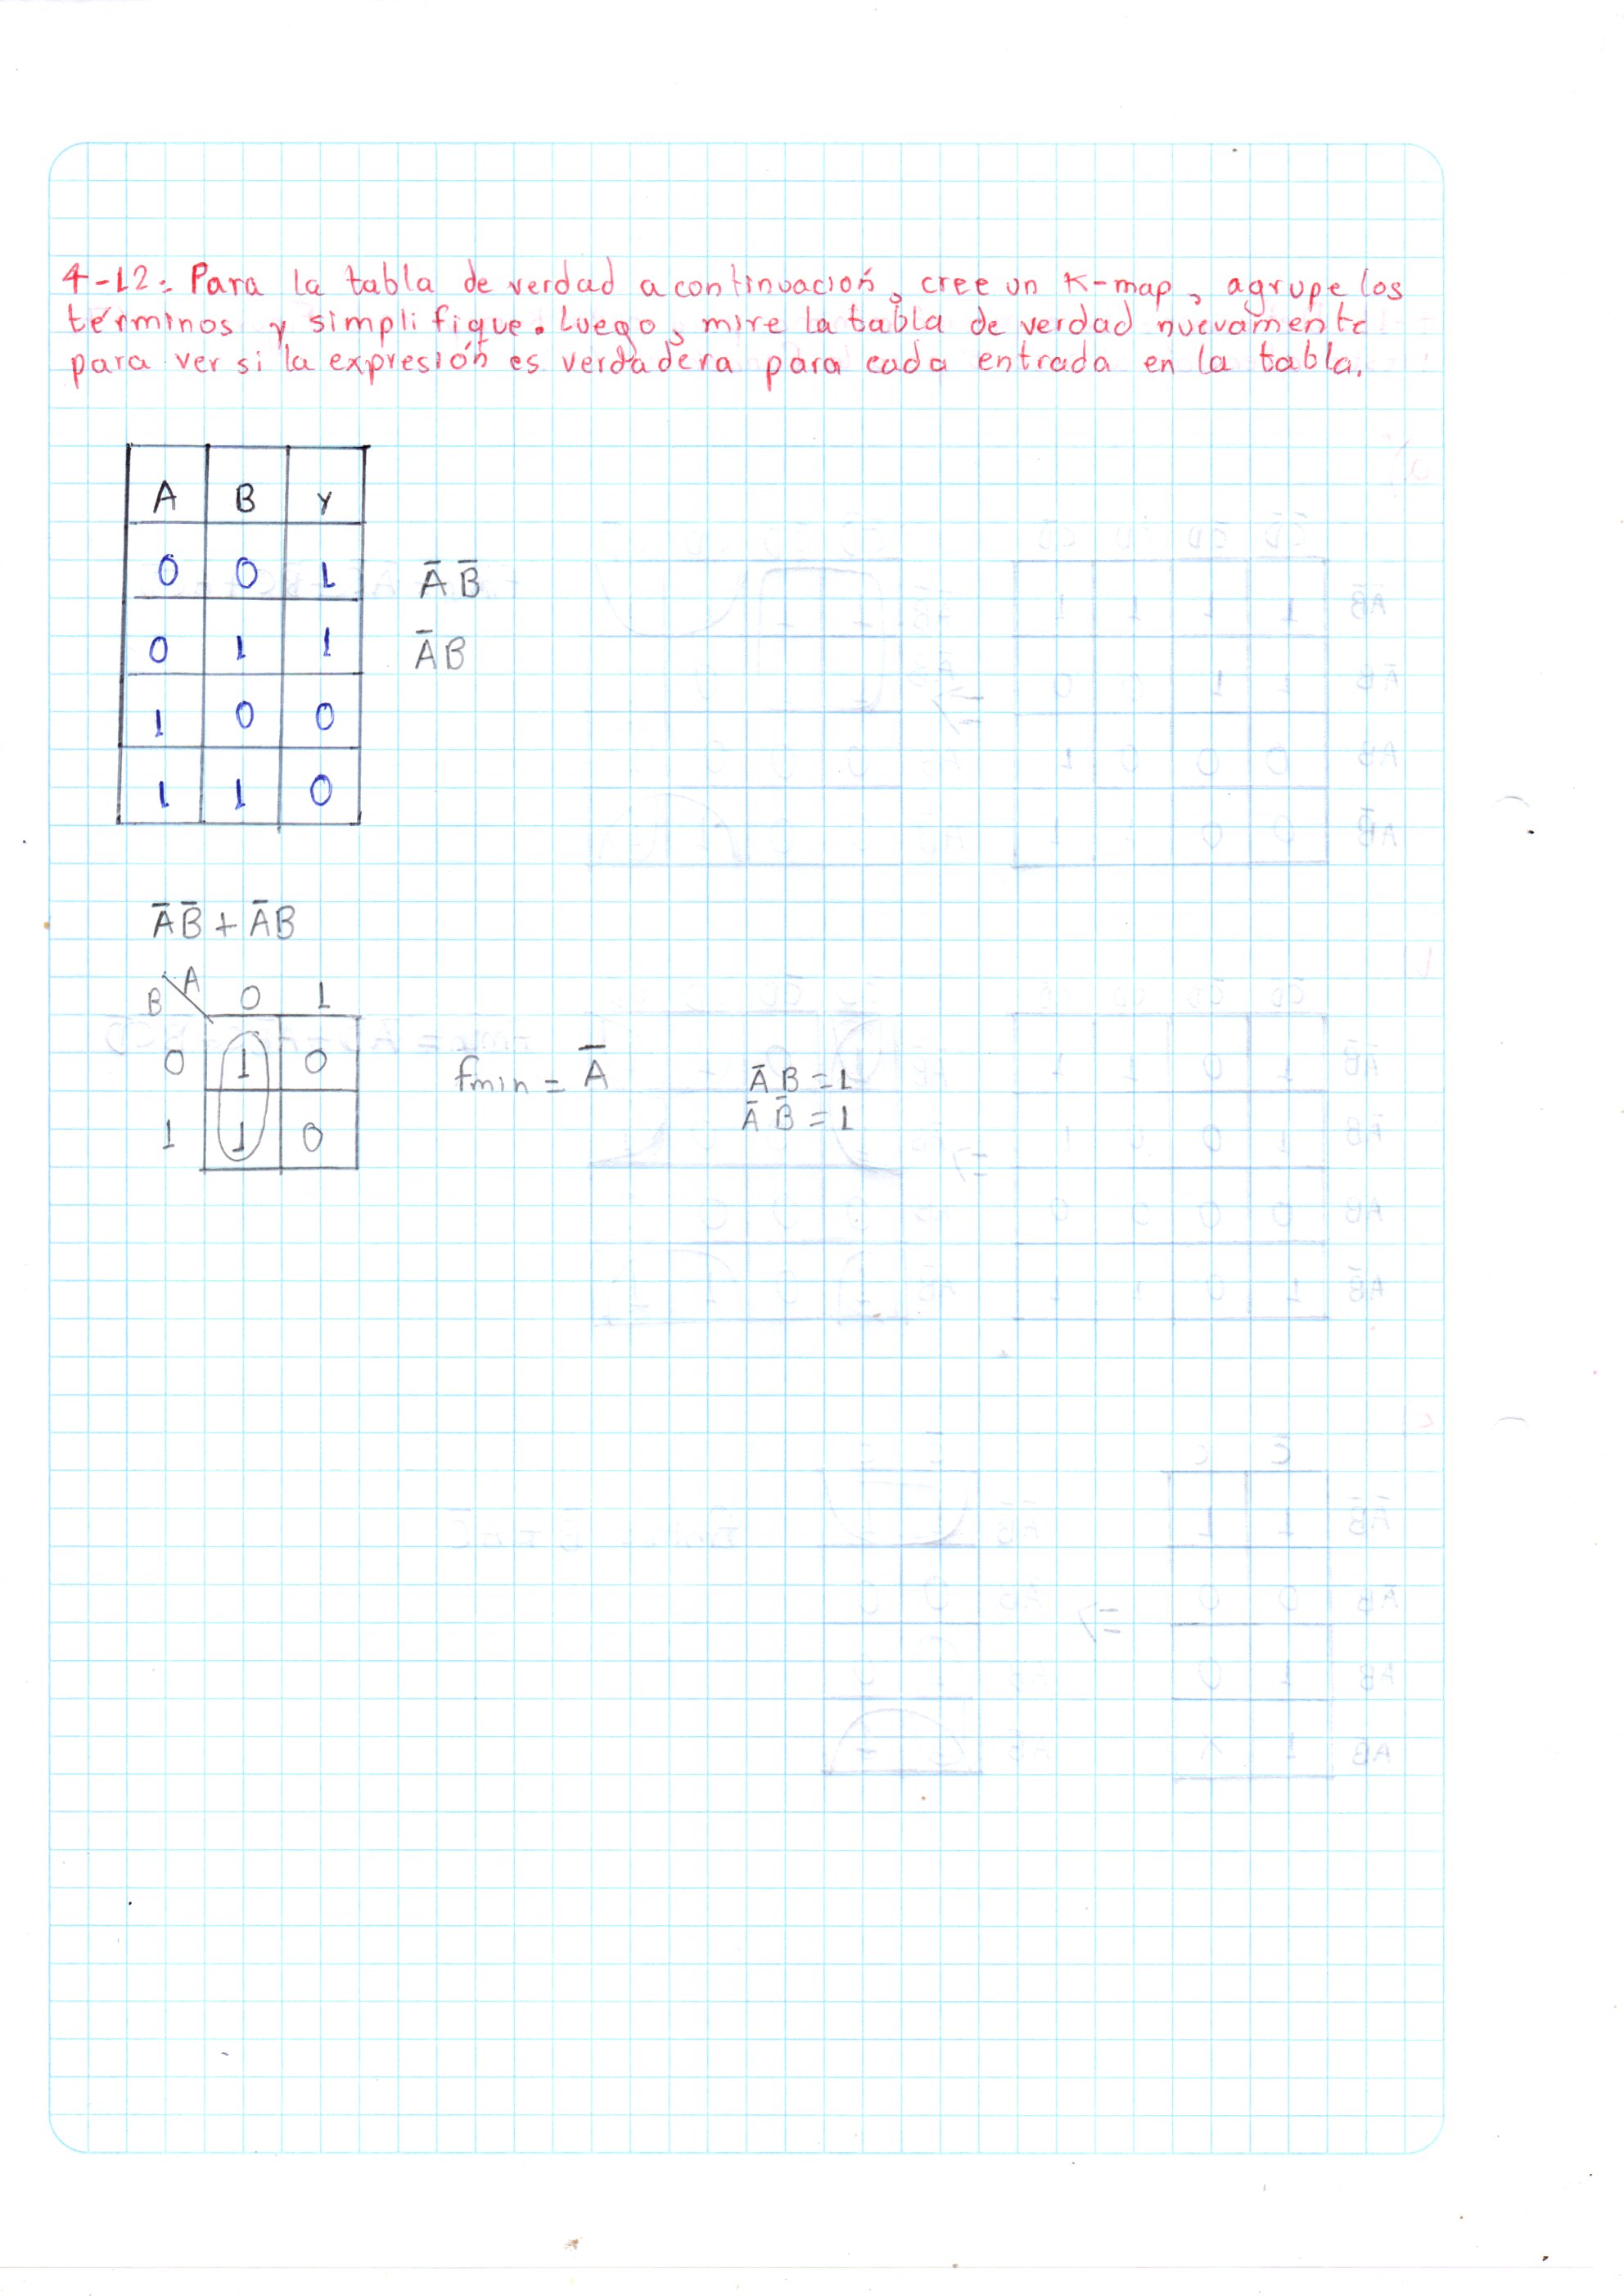 4-12: Para la tabla de verdad a continuación, cree un K-map, agrupe los
términos y simplifique. Luego, mire la tabla de verdad nuevamente
para ver si la expresión es verdadera para cada entrada en la tabla.
A B Y
0 0 1 A̅ B̅
0 1 1 A̅ B
1 0 0
1 1 0
A̅ B̅ + A̅ B
B A 0 1
0 1 0
1 1 0
fmin = A̅
A̅ B = 1
A̅ B̅ = 1